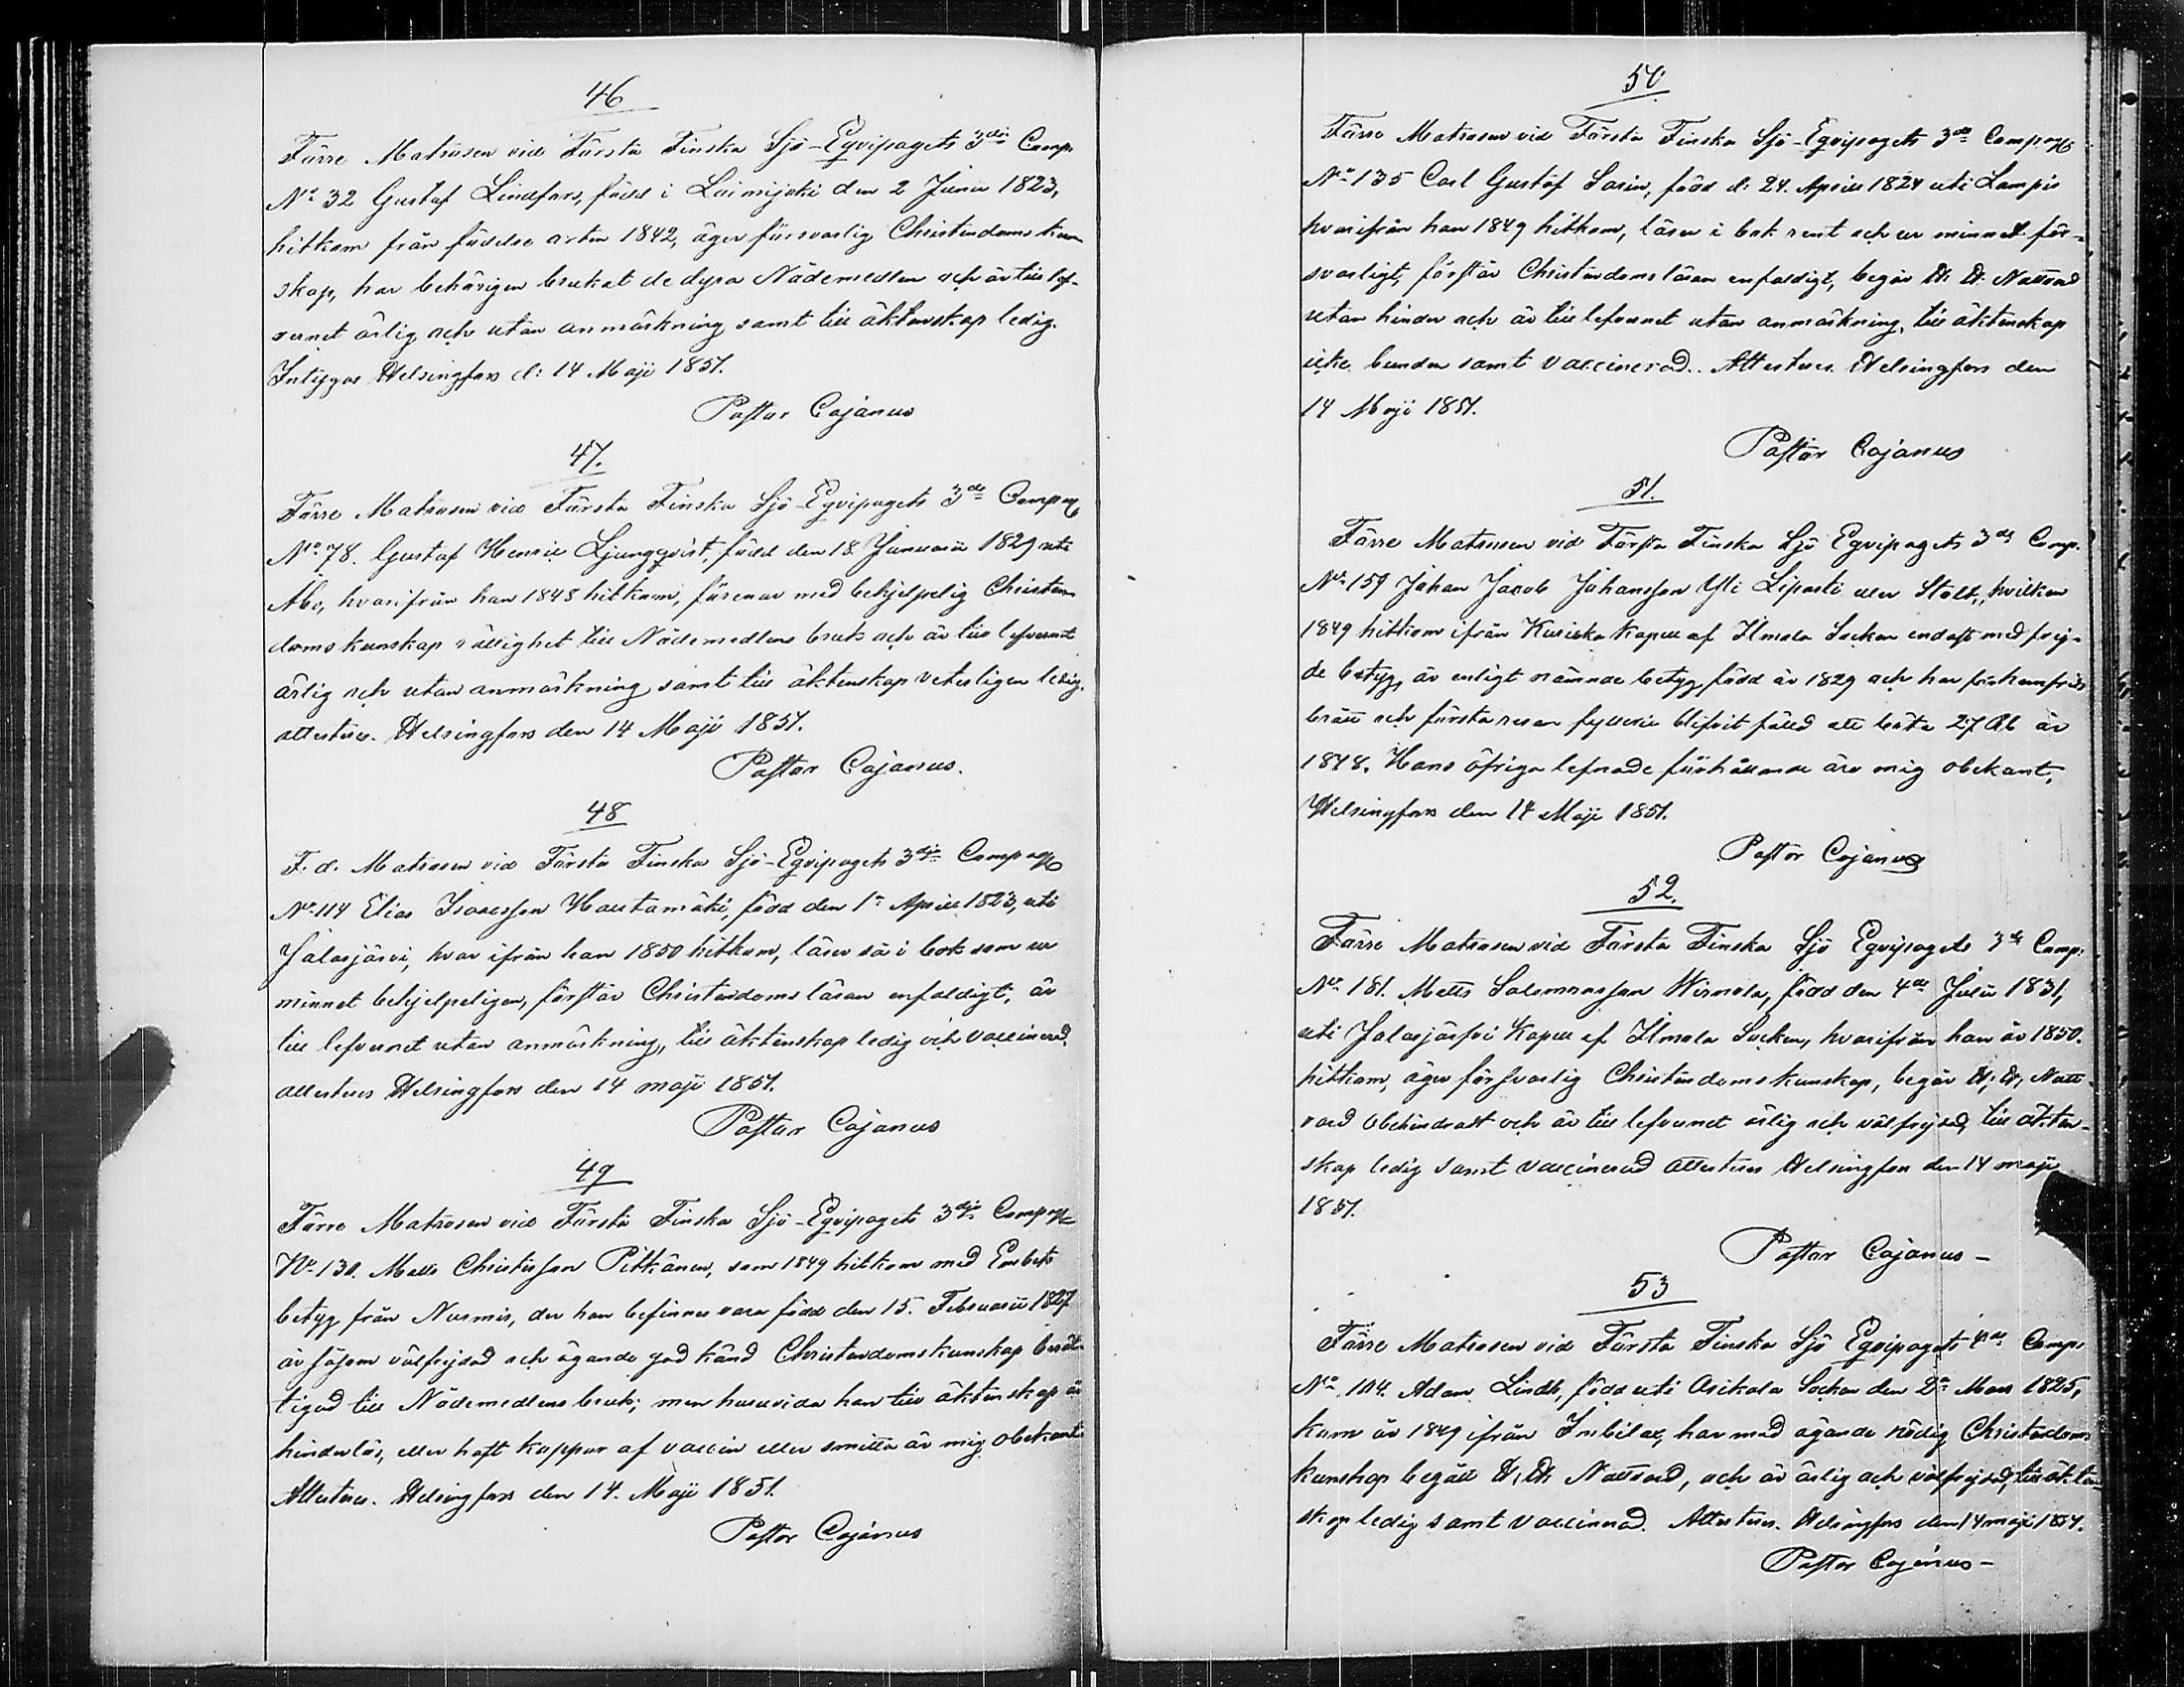 46
Förre Matrosen vid Första Finska Sjö-Eqvipagets 3dje Comp.
No 32 Gustaf Lindfors, född i Loimijoki den 2 Junii 1823,
hitkom från födelse orten 1842, äger försvarlig Christendoms kun-
skap, har behörigen brukat de dyra Nådemedlen och är till lef-
vernet ärlig och utan anmärkning samt till äktenskap ledig.
Intygar Helsingfors d: 14 Maji 1851.
Pastor Cajanus
47.
Förre Matrosen vid Första Finska Sjö-Eqvipagets 3de Comp.
No 78. Gustaf Henric Ljungqvist, född den 18 Januarii 1829 uti
Åbo, hvarifrån han 1848 hitkom, förenar med behjelpelig Christen-
doms kunskap rättighet till Nådemedlens bruk och är till lefvernet
ärlig och utan anmärkning samt till äktenskap veterligen ledig.
attesteras. Helsingfors den 14 Maji 1851.
Pastor Cajanus.
48
F. d. Matrosen vid Första Finska Sjö-Eqvipagets 3dje Comp.
No 114 Elias Isaacsson Hautamäki, född den 1a April 1823, uti
Jalasjärvi, hvar ifrån han 1850 hitkom, läser så i bok som ur
minnet behjelpeligen, förstår Christendoms läran enfaldigt, är
till lefvernet utan anmärkning, till äktenskap ledig och vaccinerad,
attesteras Helsingfors den 14 maji 1851.
Pastor Cajanus
49
Förre Matrosen vid Första Finska Sjö-Eqvipagets 3dje Comp.
No 130. Matts Christersson Pitkänen, som 1849 hitkom med Embets
betyg från Nurmis, der han befinnes vara född den 15. Februarii 1827
är såsom välfrejdad och ägande god känd Christendomskunskap berät-
tigad till Nådemedlens bruk; men huruvida han till äktenskap är
hinderlös, eller haft koppor af vaccin eller smitta är mig obekant.
Attesteras. Helsingfors den 14. Maji 1851.
Pastor Cajanus
50
Förre Matrosen vid Första Finska Sjö-Eqvipagets 3de Comp.
No 135 Carl Gustaf Sarin, född d: 24. April 1824 uti Lampis
hvarifrån han 1849 hitkom, läser i bok rent och ur minnet för-
svarligt, förstår Christendoms läran enfaldigt, begår H. H. Nattvard
utan hinder och är till lefvernet utan anmärkning, till äktenskap
icke bunden samt vaccinerad. Attesteras. Helsingfors den
14 Maji 1851.
Pastor Cajanus
51.
Förre Matrosen vid Första Finska Sjö Eqvipagets 3de Comp.
No 159 Johan Jacob Johansson Yli Lipasti eller Stolt, hvilken
1849 hitkom ifrån Kurikka Kapell af Ilmola Socken endast med frej-
de betyg, är enligt nämnde betyg född år 1829 och har för hemfrids
brått och första resan fylleri blifvit fälld att böta 27 Rb år
1848. Hans öfriga lefnads förhållande äro mig obekant,
Helsingfors den 14 Maji 1851.
Pastor Cajanus
52.
Förre Matrosen vid Första Finska Sjö Eqvipagets 3de Comp.
No 181. Matts Salomonsson Wirmola, född den 4de Julii 1831,
uti Jalasjärfvi Kapell af Ilmola Socken, hvarifrån han år 1850.
hitkom, äger försvarlig Christendomskunskap, begår H. H. Natt-
vard obehindradt och är till lefvernet ärlig och välfrejdad, till äkten-
skap ledig samt vaccinerad attesteras Helsingfors den 14 maji
1851.
Pastor Cajanus -
53
Förre Matrosen vid Första Finska Sjö Eqvipagets 4de Comp.
No 104. Adam Lindh, född uti Asikala Socken den 2a Mars 1825,
kom år 1849 ifrån Imbilax, har med ägande nödig Christendoms
kunskap begått H. H. Nattvard, och är ärlig och välfrejdad, till äkten-
skap ledig samt vaccinerad. Attesteras. Helsingfors den 14 maji 1851.
Pastor Cajanus -